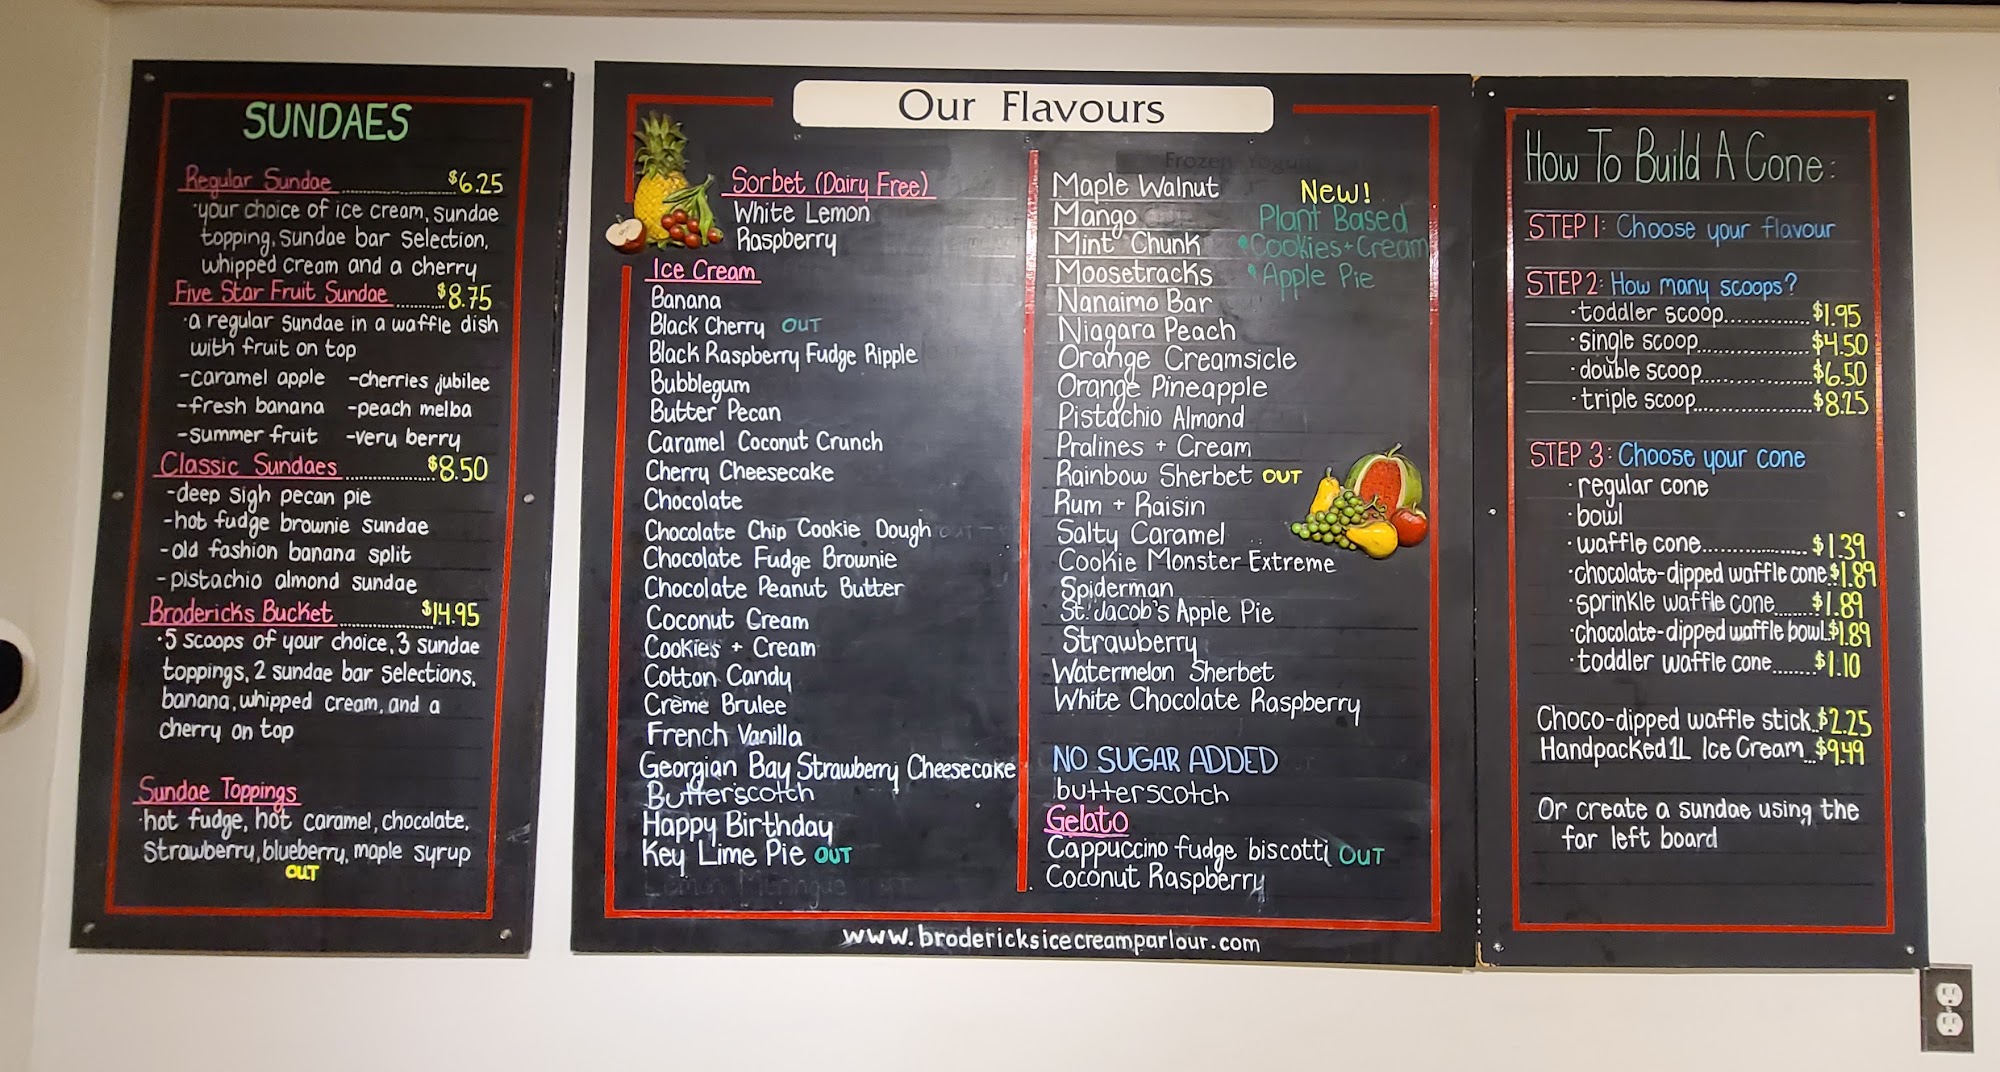 SUNDAES
Regular Sundae ........ $6.25
·your choice of ice cream, sundae
topping, sundae bar selection,
whipped cream and a cherry
Five Star Fruit Sundae ....... $8.75
·a regular sundae in a waffle dish
with fruit on top
-caramel apple -cherries jubilee
-fresh banana -peach melba
-summer fruit -very berry
Classic Sundaes ........ $8.50
-deep sigh pecan pie
-hot fudge brownie sundae
-old fashion banana split
-pistachio almond sundae
Brodericks Bucket ........ $14.95
·5 scoops of your choice, 3 sundae
toppings, 2 sundae bar selections,
banana, whipped cream, and a
cherry on top
Sundae Toppings
·hot fudge, hot caramel, chocolate,
strawberry, blueberry, maple syrup
OUT
Our Flavours
Sorbet (Dairy Free)
White Lemon
Raspberry
Ice Cream
Banana
Black Cherry OUT
Black Raspberry Fudge Ripple
Bubblegum
Butter Pecan
Caramel Coconut Crunch
Cherry Cheesecake
Chocolate
Chocolate Chip Cookie Dough
Chocolate Fudge Brownie
Chocolate Peanut Butter
Coconut Cream
Cookies + Cream
Cotton Candy
Crème Brulee
French Vanilla
Georgian Bay Strawberry Cheesecake
Butterscotch
Happy Birthday
Key Lime Pie OUT
Lemon Meringue
Frozen Yogurt
Maple Walnut
Mango
Mint Chunk
Moosetracks
Nanaimo Bar
Niagara Peach
Orange Creamsicle
Orange Pineapple
Pistachio Almond
Pralines + Cream
Rainbow Sherbet OUT
Rum + Raisin
Salty Caramel
Cookie Monster Extreme
Spiderman
St. Jacob's Apple Pie
Strawberry
Watermelon Sherbet
White Chocolate Raspberry
New!
Plant Based
·Cookies + Cream
·Apple Pie
NO SUGAR ADDED
butterscotch
Gelato
Cappuccino fudge biscotti OUT
Coconut Raspberry
www.brodericksicecreamparlour.com
How To Build A Cone:
STEP 1: Choose your flavour
STEP 2: How many scoops?
·toddler scoop.............. $1.95
·single scoop.................. $4.50
·double scoop.................. $6.50
·triple scoop................... $8.25
STEP 3: Choose your cone
·regular cone
·bowl
·waffle cone................ $1.39
·chocolate-dipped waffle cone. $1.89
·sprinkle waffle cone....... $1.89
·chocolate-dipped waffle bowl. $1.89
·toddler waffle cone....... $1.10
Choco-dipped waffle stick.. $2.25
Handpacked 1L Ice Cream... $9.49
Or create a sundae using the
far left board